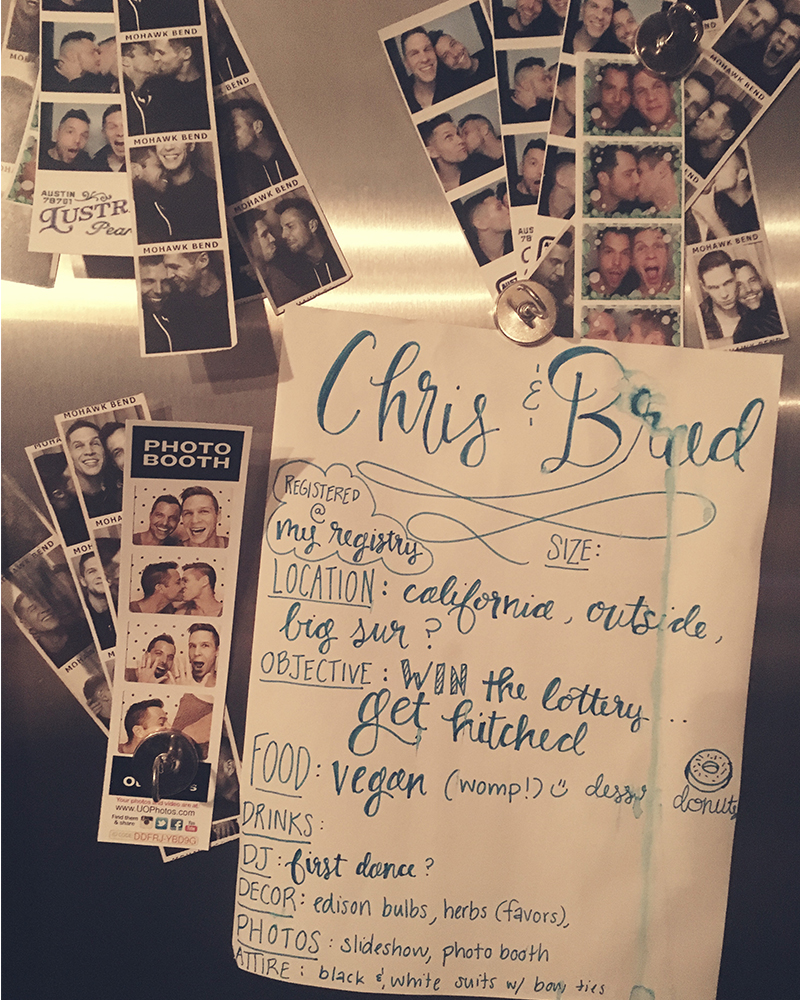 MOHAWK BEND
MOHAWK BEND
MOHAWK BEND
MOHAWK BEND
AUSTIN
78701
LUSTR
Pear
MOHAWK BEND
MOHAWK BEND
MOHAWK BEND
AUS
78
MOHAWK BEND
MOHAWK BEND
PHOTO
BOOTH
Your photos and video are at
www.UOPhotos.com
Find them
& share
DDFRJ-YBD9G
Chris & Brad
REGISTERED
@
my registry
SIZE:
LOCATION: california, outside,
big sur?
OBJECTIVE: WIN the lottery...
get hitched
FOOD: vegan (womp!) ☺ donuts
DRINKS:
DJ: first dance?
DECOR: edison bulbs, herbs (favors),
PHOTOS: slideshow, photo booth
ATTIRE: black &, white suits w/ bow ties